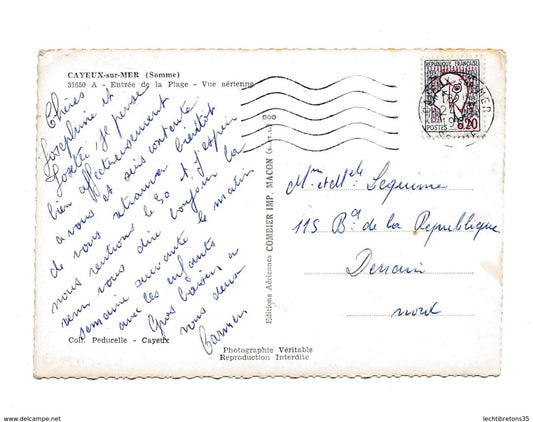 CAYEUX-sur-MER (Somme)
31650 A - Entrée de la Plage - Vue aérienne
Chères
Josephine et
Josette Je pense
bien affectueusement
a vous et suis contente
de vous retrouver bientôt
nous rentrons le 30 et j'espère
venir vous dire bonjour la
semaine suivante le matin
avec les enfants
Gros baisers a
vous deux
Carmen
Coll. Peducelle - Cayeux
Editions Aériennes COMBIER IMP. MACON
Photographie Véritable
Reproduction Interdite
REPUBLIQUE FRANÇAISE
POSTES 0,20
Mme et Mlle Lequime
115 Bd de la Republique
Denain
nord
www.delcampe.net
lechtibretons35